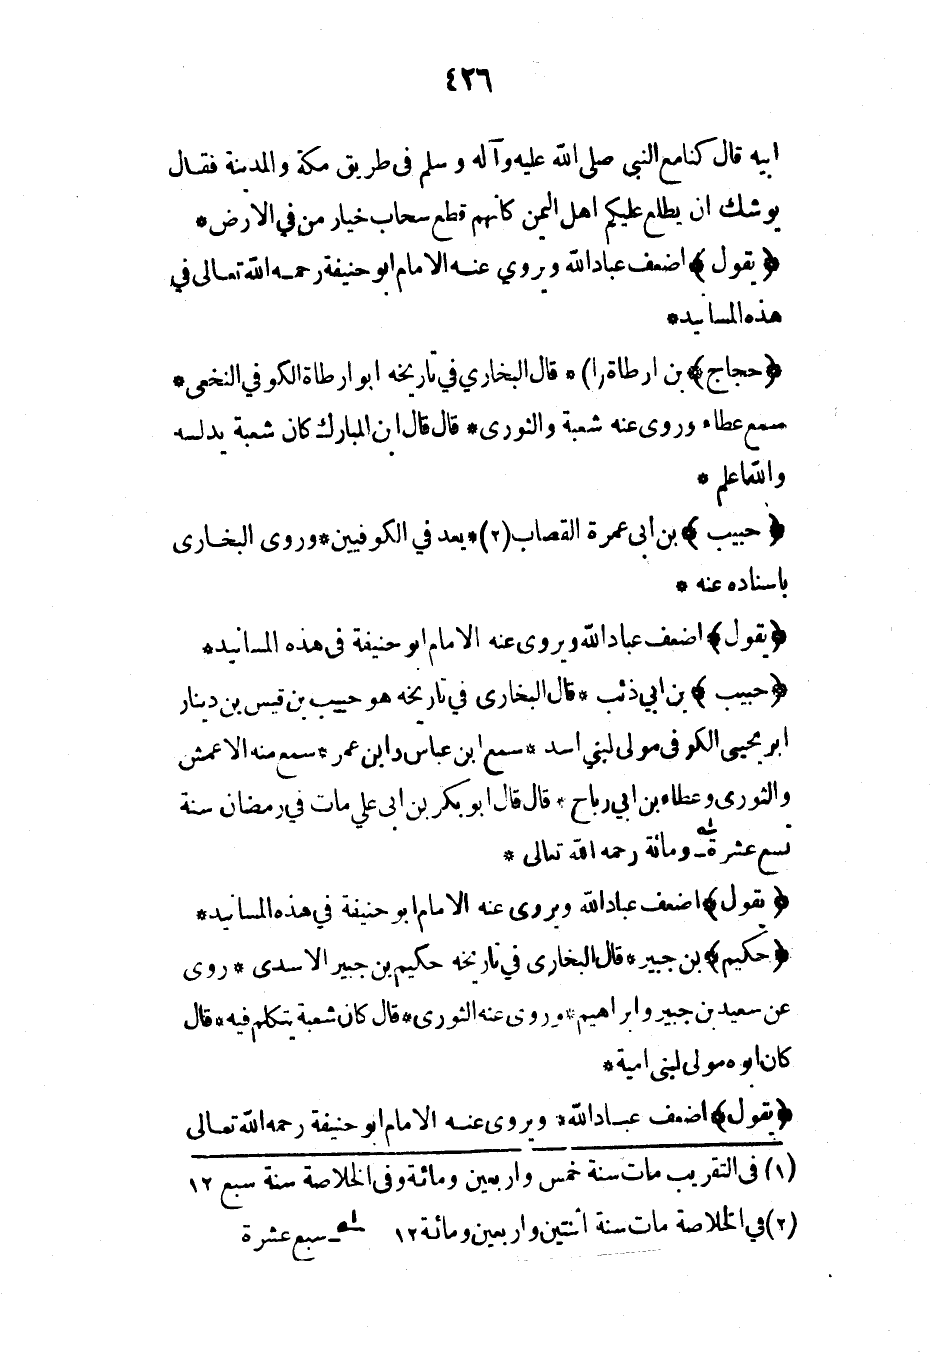 ٤٢٦
ابيه قال كنا مع النبى صلى الله عليه وآله و سلم فى طريق مكة والمدينة فقال
يوشك ان يطلع عليكم اهل اليمن كانهم قطع سحاب خيار من في الارض *
﴿ يقول ﴾ اضعف عباد الله ويروي عنه الامام ابو حنيفة رحمه الله تعالى في
هذه المسانيد *
﴿ حجاج ﴾ بن ارطاة (١) * قال البخاري في تاريخه ابو ارطاة الكوفي النخعى *
سمع عطاء وروى عنه شعبة والثورى * قال قال ابن المبارك كان شعبة يدلسه
والله اعلم *
﴿ حبيب ﴾ بن ابى عمرة القصاب (٢) * يعد في الكوفيين * وروى البخارى
باسناده عنه *
﴿ يقول ﴾ اضعف عباد الله ويروى عنه الامام ابو حنيفة فى هذه المسانيد *
﴿ حبيب ﴾ بن ابي ذئب * قال البخارى في تاريخه هو حبيب بن قيس بن دينار
ابو يحيى الكوفى مولى لبني اسد * سمع ابن عباس وابن عمر * سمع منه الاعمش
والثورى وعطاء بن ابي رباح * قال قال ابو بكر بن ابى علي مات في رمضان سنة
تسع عشرة ومائة رحمه الله تعالى *
﴿ يقول ﴾ اضعف عباد الله ويروى عنه الامام ابو حنيفة في هذه المسانيد *
﴿ حكيم ﴾ بن جبير * قال البخارى في تاريخه حكيم بن جبير الاسدى * روى
عن سعيد بن جبير وابراهيم * وروى عنه الثورى * قال كان شعبة يتكلم فيه * قال
كان ابوه مولى لبنى امية *
﴿ يقول ﴾ اضعف عباد الله * ويروى عنه الامام ابو حنيفة رحمه الله تعالى
(١) فى التقريب مات سنة خمس واربعين ومائة وفى الخلاصة سنة سبع ١٢
(٢) في الخلاصة مات سنة اثنتين واربعين ومائة ١٢ سبع عشرة